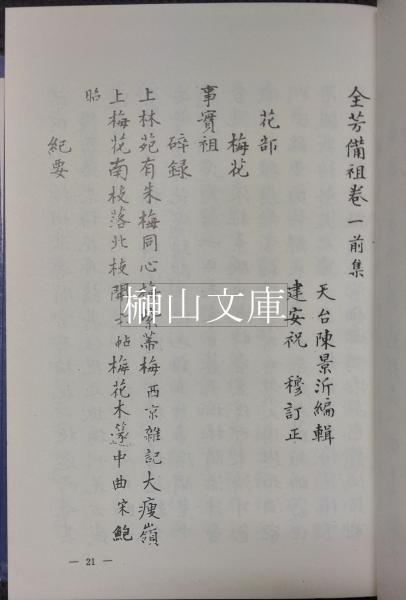 全芳備祖卷一前集
天台陳景沂編輯
建安祝 穆訂正
花部
梅花
事實祖
碎録
上林苑有朱梅同心梅紫蒂梅西京雜記大瘦嶺
上梅花南枝落北枝開六帖梅花木篴中曲宋鮑
昭
紀要
榊山文庫
— 21 —